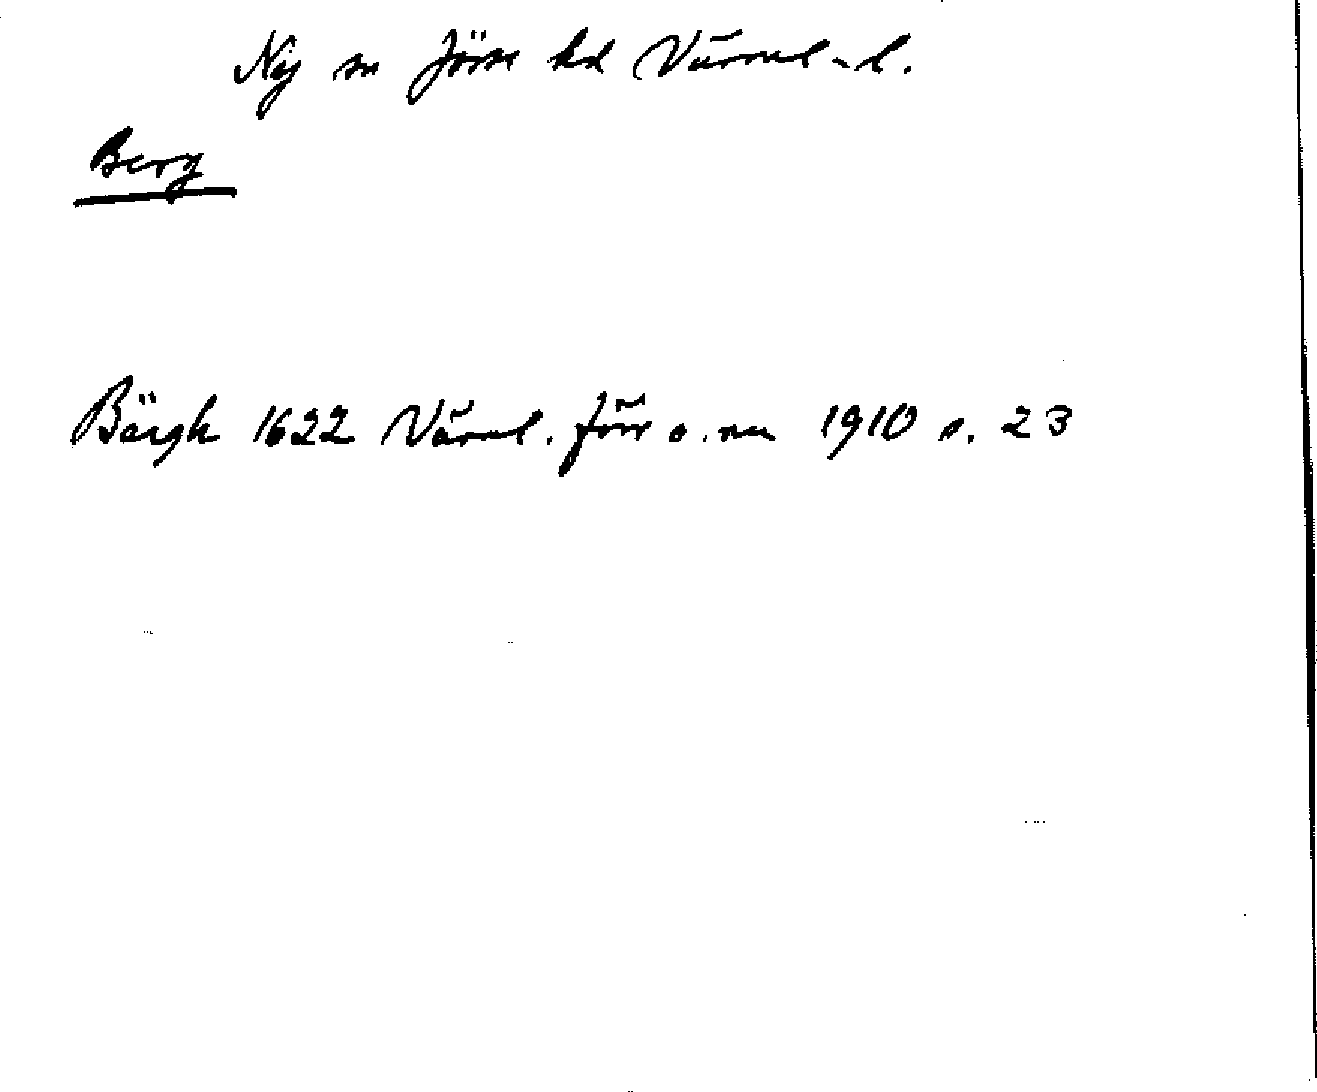 Ny sn Jösse hd Värml-l.
Berg
Bärgh 1622 Värml. förr o. nu 1910 s. 23